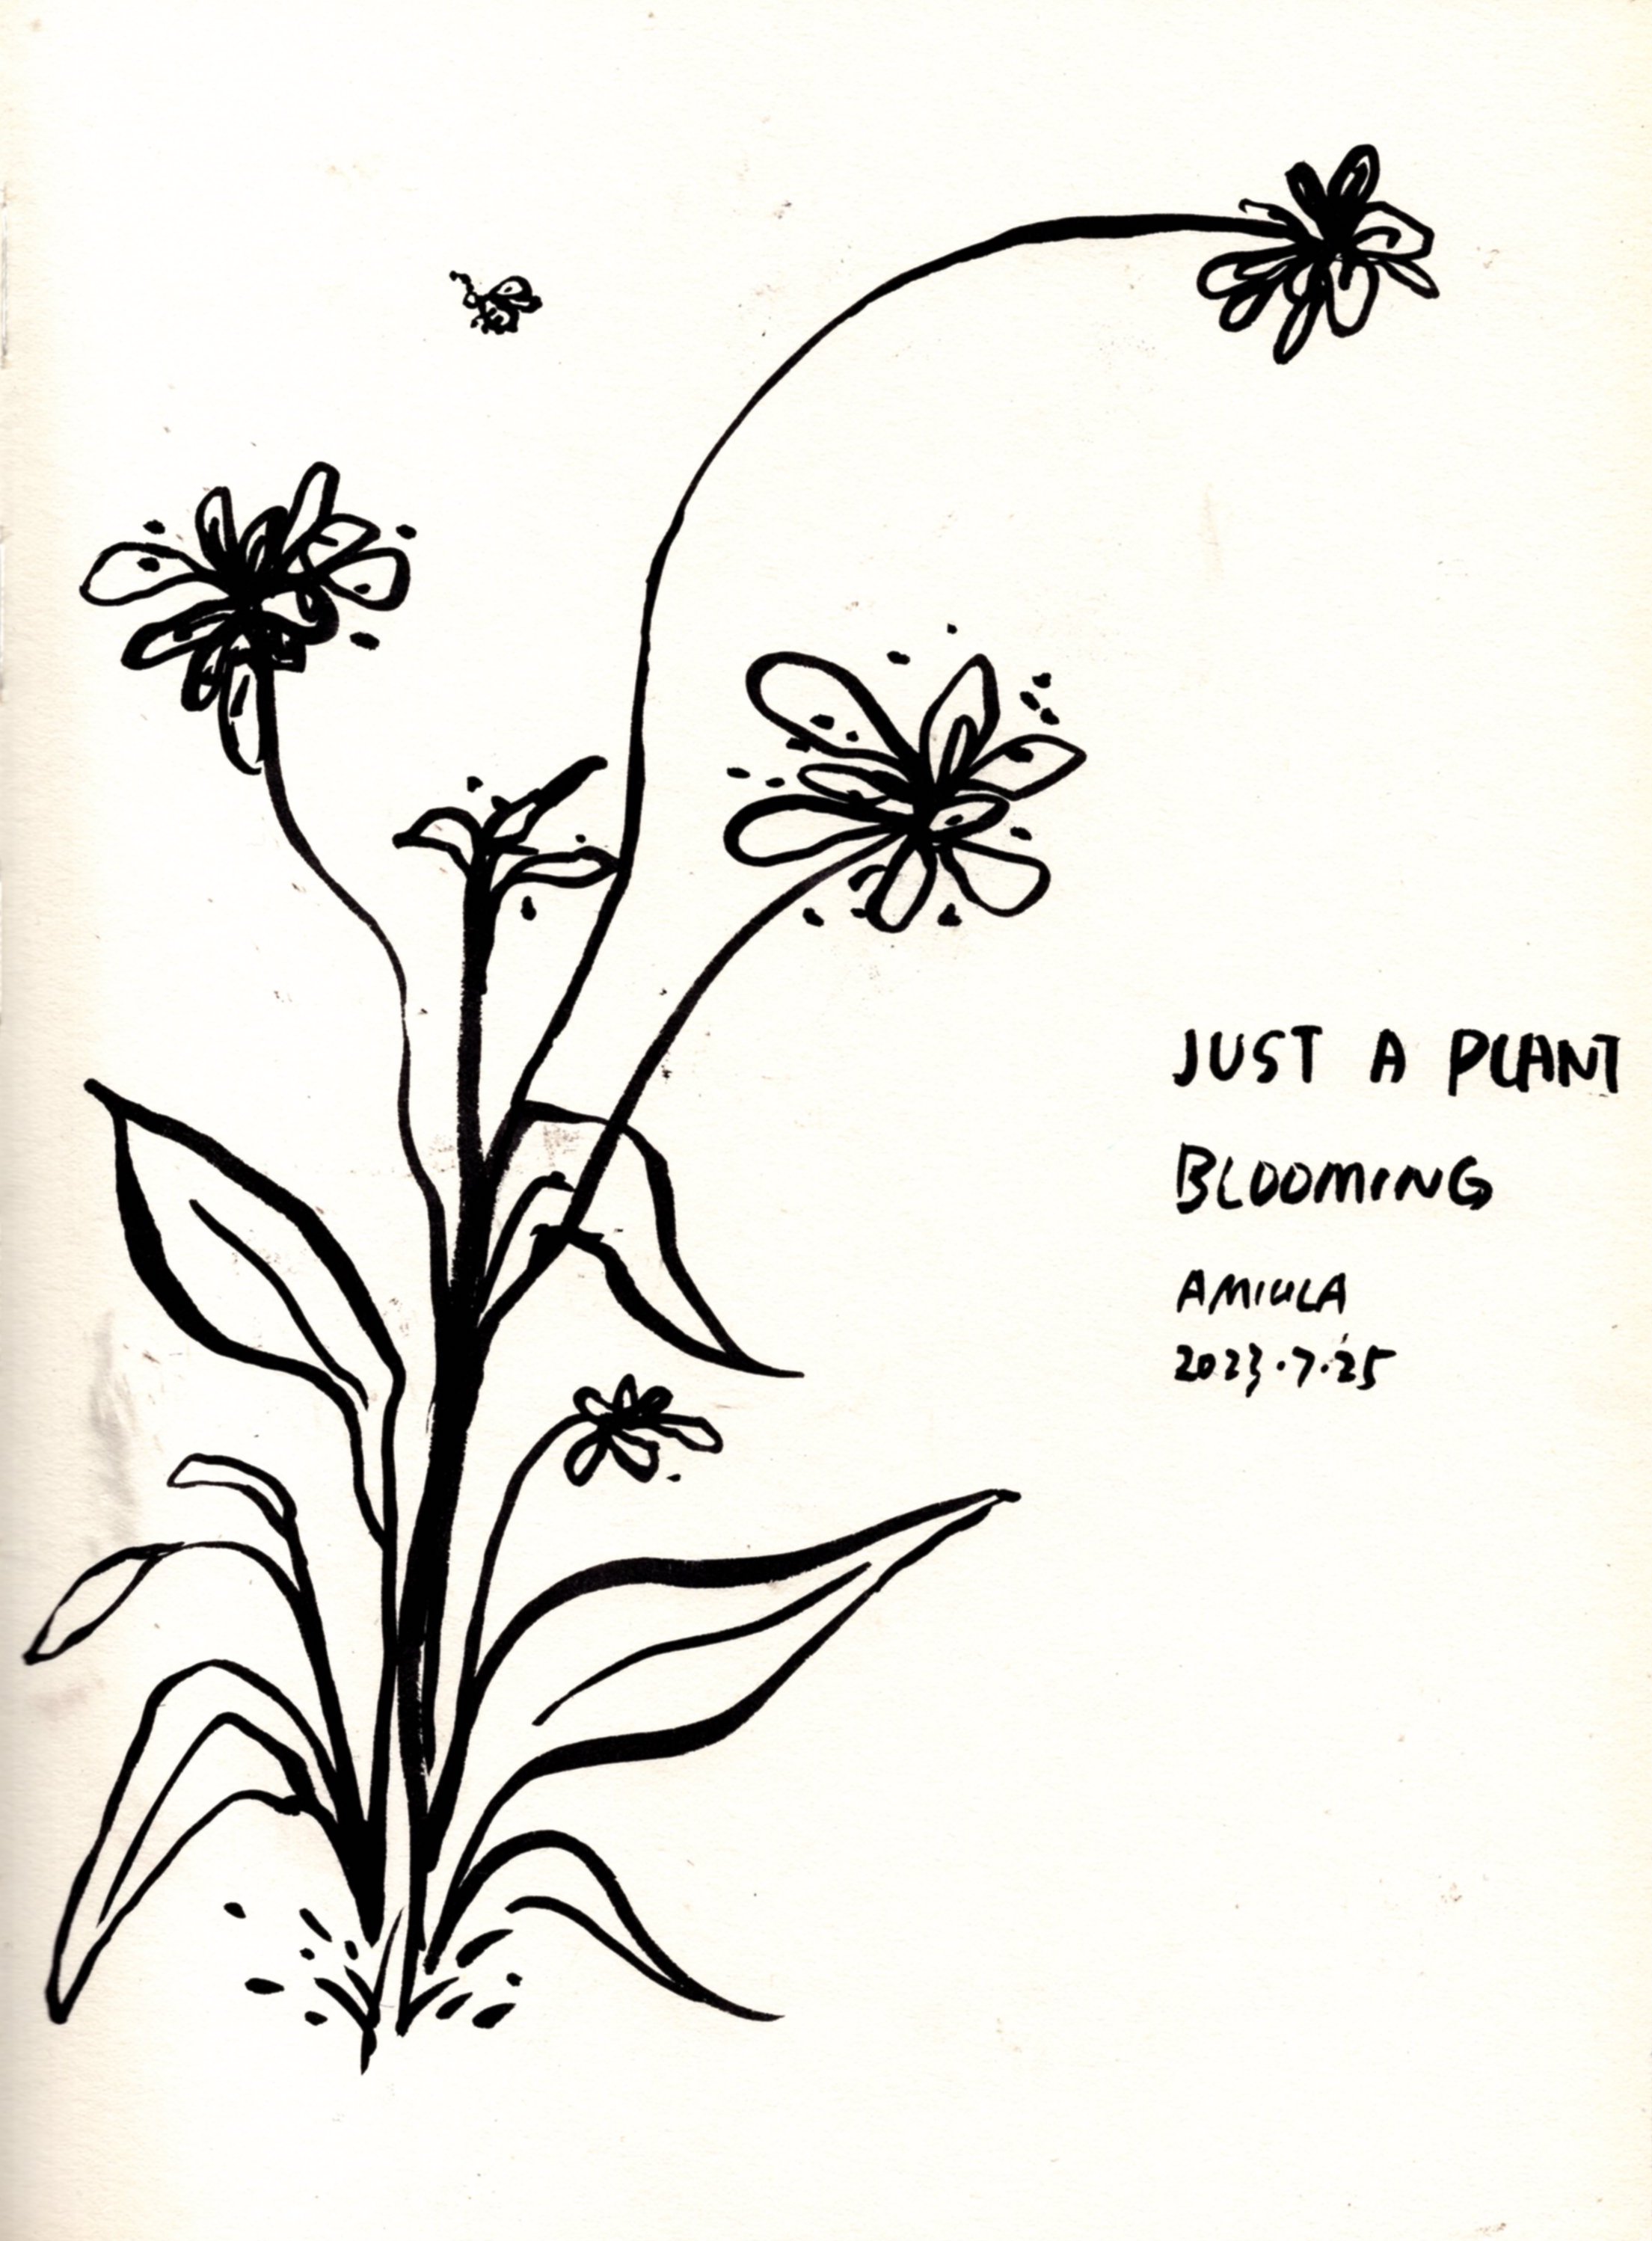 JUST A PLANT
BLOOMING
AMIULA
2023.7.25